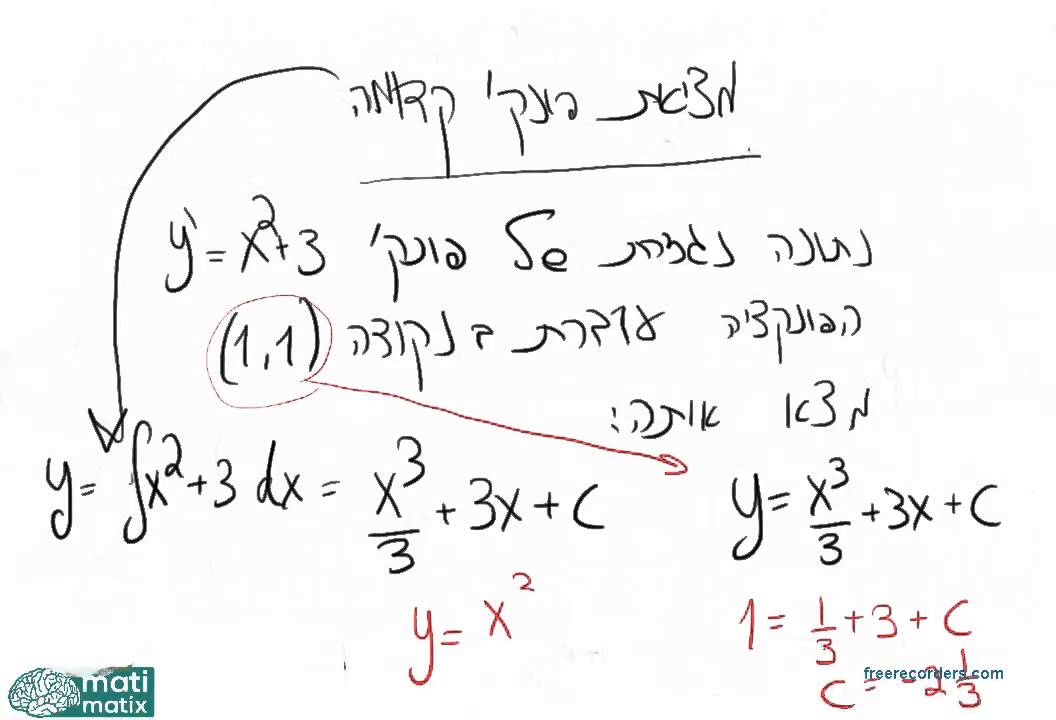 מציאת פונק' קדומה
נתונה נגזרת של פונק' y'=x²+3
הפונקציה עוברת בנקודה (1,1)
מצא אותה:
y= ∫x²+3 dx = x³/3 + 3x + c
y = x³/3 + 3x + c
y = x²
1 = 1/3 + 3 + c
c = -2 1/3
freerecorders.com
mati
matix